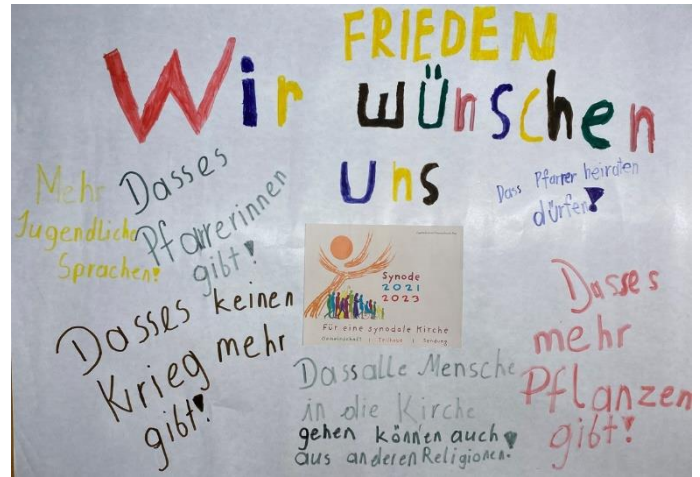 FRIEDEN
Wir wünschen
uns
Mehr
Jugendliche
Sprachen!
Dasses
Pfarrerinnen
gibt!
Dass Pfarrer heiraten
dürfen!
Dasses keinen
Krieg mehr
gibt!
Synode
2021
2023
Für eine synodale Kirche
Gemeinschaft | Teilhabe | Sendung
Dassalle Mensche
in die Kirche
gehen können auch
aus anderen Religionen!
Dasses
mehr
Pflanzen
gibt!